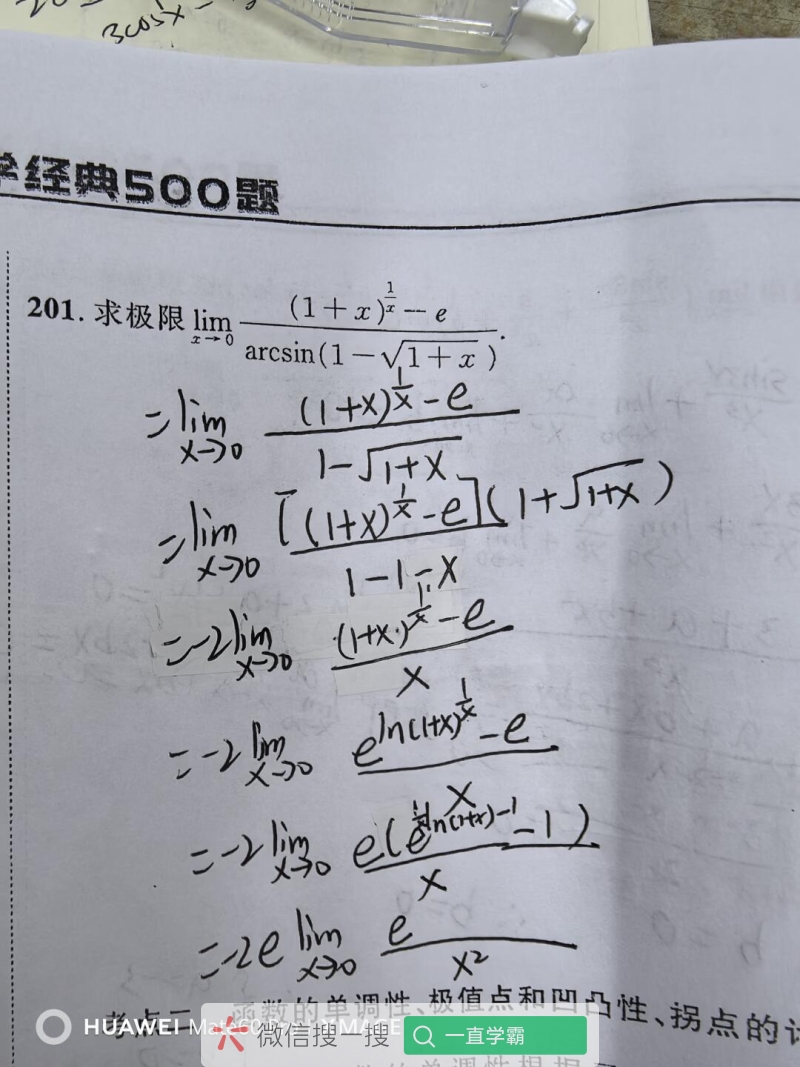 3cos x -
学经典500题
201. 求极限 lim x→0 ((1+x)^(1/x) - e)/(arcsin(1-√(1+x))).
= lim x→0 ((1+x)^(1/x) - e)/(1-√(1+x))
= lim x→0 ([(1+x)^(1/x) - e](1+√(1+x)))/(1-1-x)
= -2 lim x→0 ((1+x)^(1/x) - e)/x
= -2 lim x→0 (e^(ln(1+x)^(1/x)) - e)/x
= -2 lim x→0 (e(e^((1/x)ln(1+x)-1) - 1))/x
= -2e lim x→0 e/x²
考点二 函数的单调性、极值点和凹凸性、拐点的计
HUAWEI Mate60
微信搜一搜 一直学霸